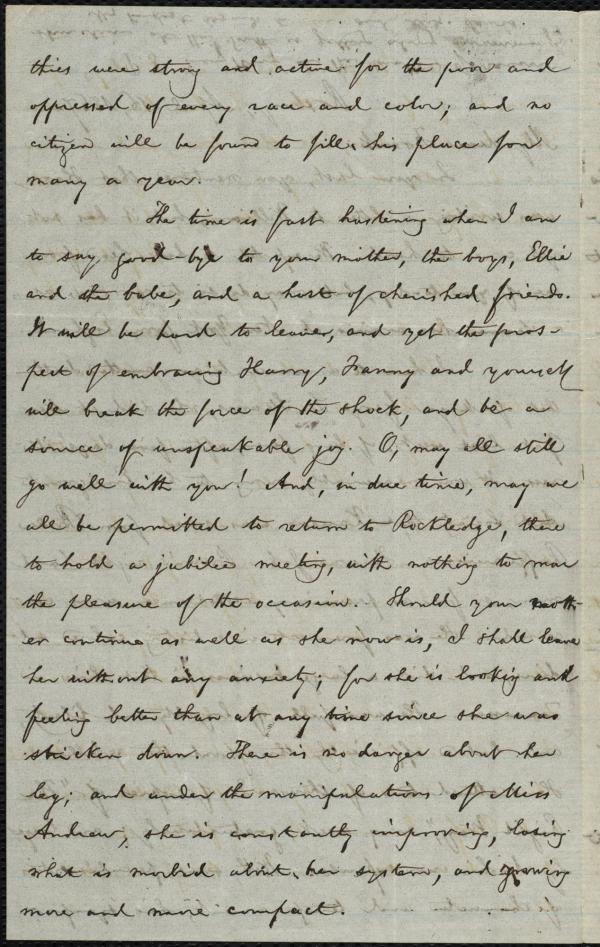 thies were strong and active for the poor and
oppressed of every race and color; and no
citizen will be found to fill his place for
many a year.
The time is fast hastening when I am
to say good-bye to your mother, the boys, Ellie
and the babe, and a host of cherished friends.
It will be hard to leave, and yet the pros-
pect of embracing Harry, Fanny and yourself
will break the force of the shock, and be a
source of unspeakable joy. O, may all still
go well with you! And, in due time, may we
all be permitted to return to Rockledge, there
to hold a jubilee meeting, with nothing to mar
the pleasure of the occasion. Should your moth-
er continue as well as she now is, I shall leave
her without any anxiety; for she is looking and
feeling better than at any time since she was
stricken down. There is no danger about her
leg; and under the manipulations of Miss
Andrew, she is constantly improving, losing
what is morbid about her system, and growing
more and more compact.